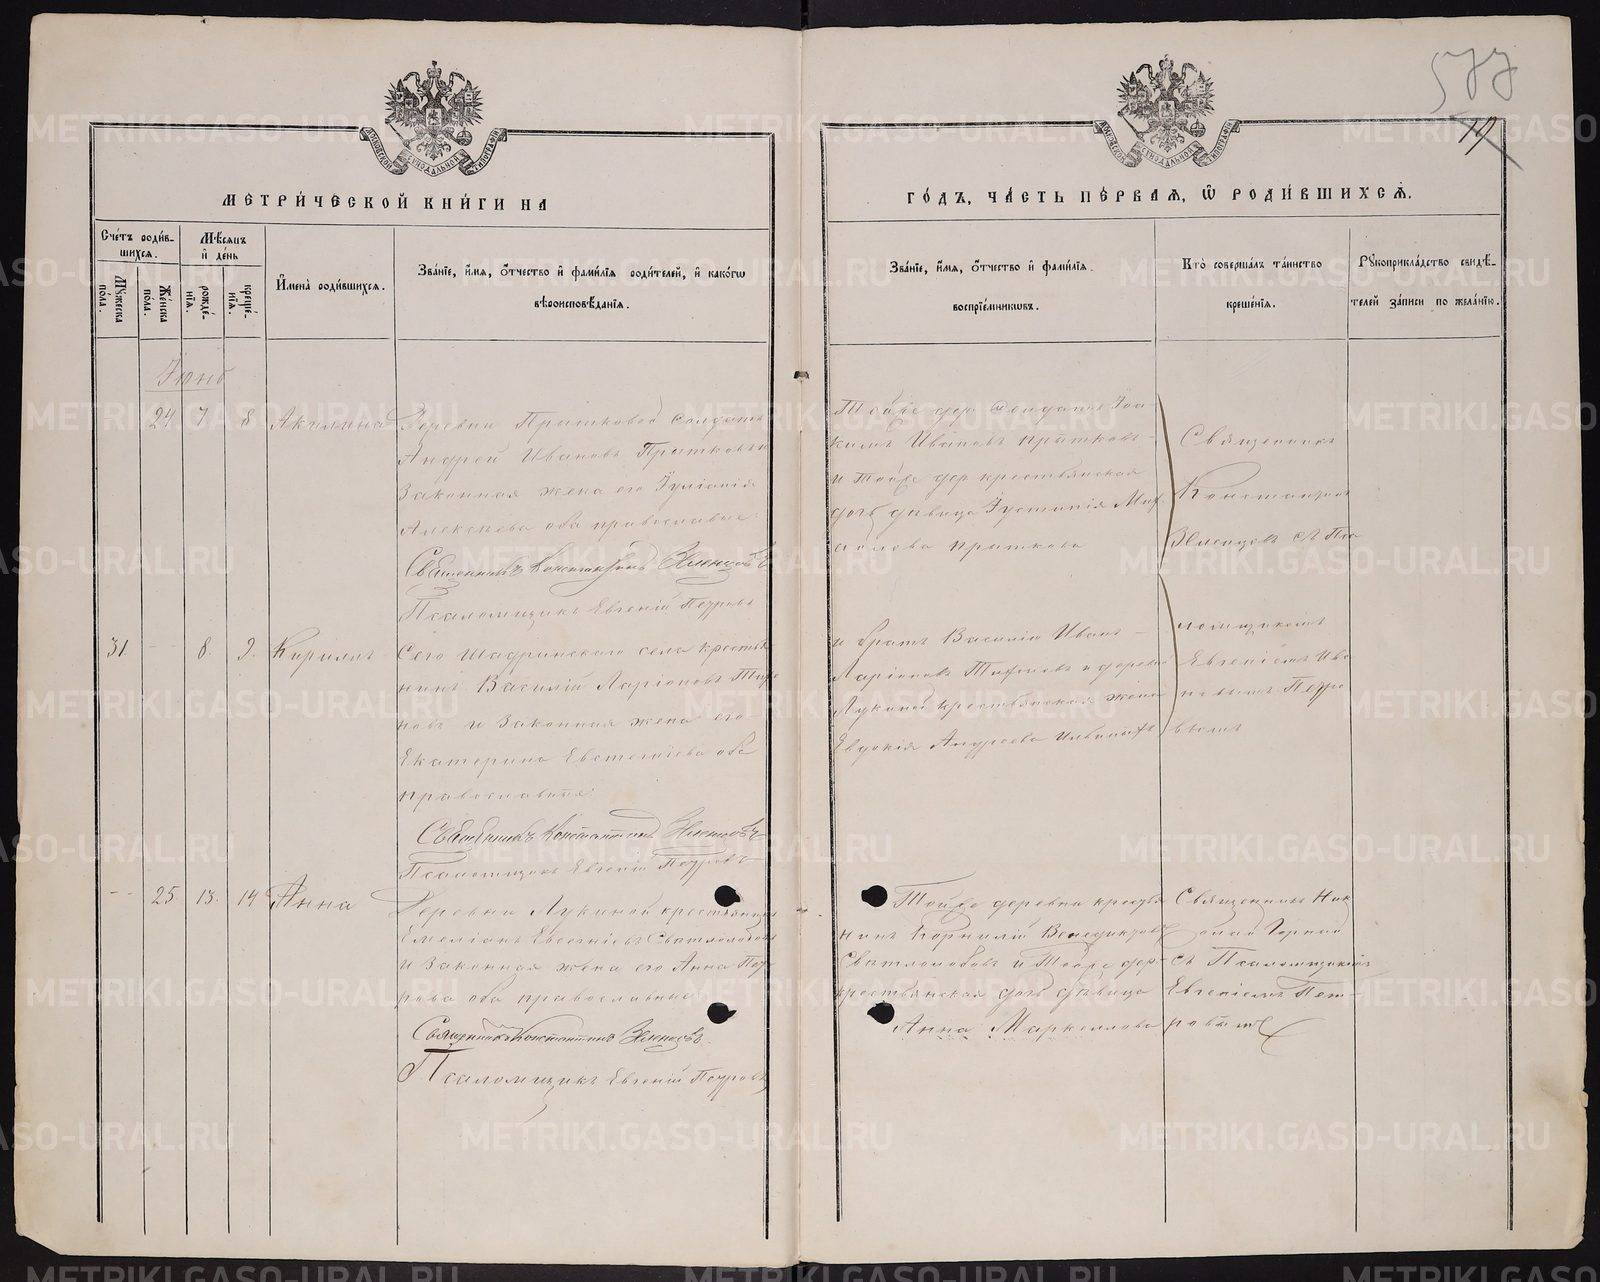 577
19
МЕТРИ́ЧЕСКОЙ КНИ́ГИ НА
ГО́ДЪ, ЧА́СТЬ ПЕ́РВАЯ, Ѡ РОДИ́ВШИХСѦ.
Сче́тъ роди́в-
шихся.
Мѣсяцъ
и̂ де́нь
Мꙋжеска
пола.
Же́нска
по́ла.
рожде́-
нїѧ.
креще́-
нїѧ.
И҆мена̀ роди́вшихся.
Зва́нїе, и҆́мя, ѻ҆́тчество и҆ фами́лїя роди́телей, и҆ како́гѡ
вѣроисповѣ́данїя.
Зва́нїе, и҆́мя, ѻ҆́тчество и҆ фами́лїя
воспрїе́мникѡвъ.
Кто̀ соверша́лъ та́инство
креще́нїя.
Рꙋкоприкла́дство свидѣ́-
телей за́писи по жела́нїю.
Іюнь
24 7 8 Акилина
Деревни Прытковой солдатъ
Андрей Ивановъ Прытковъ и
законная жена его Іуліанія
Алексѣева оба православные
Священникъ Константинъ Зеленцовъ
Псаломщикъ Евгеній Петровъ
Тойже дер солдатъ Іоа-
кимъ Ивановъ Прытковъ
и тойже дер крестьянская
дочь дѣвица Іустинія
Прыткова
Священникъ
Константинъ
31 8. 9. Кириллъ
Сего Шадринскаго села кресть
нинъ Василій Ларіоновъ
новъ и законная жена его
Екатерина Евстегніева оба
православные:
Священникъ Константинъ Зеленцовъ
Псаломщикъ Евгеній Петровъ
и братъ Василія Иванъ
Ларіоновъ и деревни
Лукиной крестьянская жена
Евдокія Андреева
ломщикомъ
Евгеніемъ
Петро
вымъ
25 13. 14 Анна
Деревни Лукиной крестьянинъ
Емеліанъ Евгеніевъ Свѣтлолобовъ
и законная жена его Анна Пет
рова оба православные
Священникъ Константинъ Зеленцовъ
Псаломщикъ Евгеній Петровъ
Тойже деревни крестья
нинъ Корнилій Венедиктовъ
Свѣтлолобовъ и тойже дер
крестьянская дочь дѣвица
Анна Маркеллова
Священникъ Ник
олай
съ Псаломщикомъ
Евгеніемъ Пет-
ровымъ
METRIKI.GASO-URAL.RU